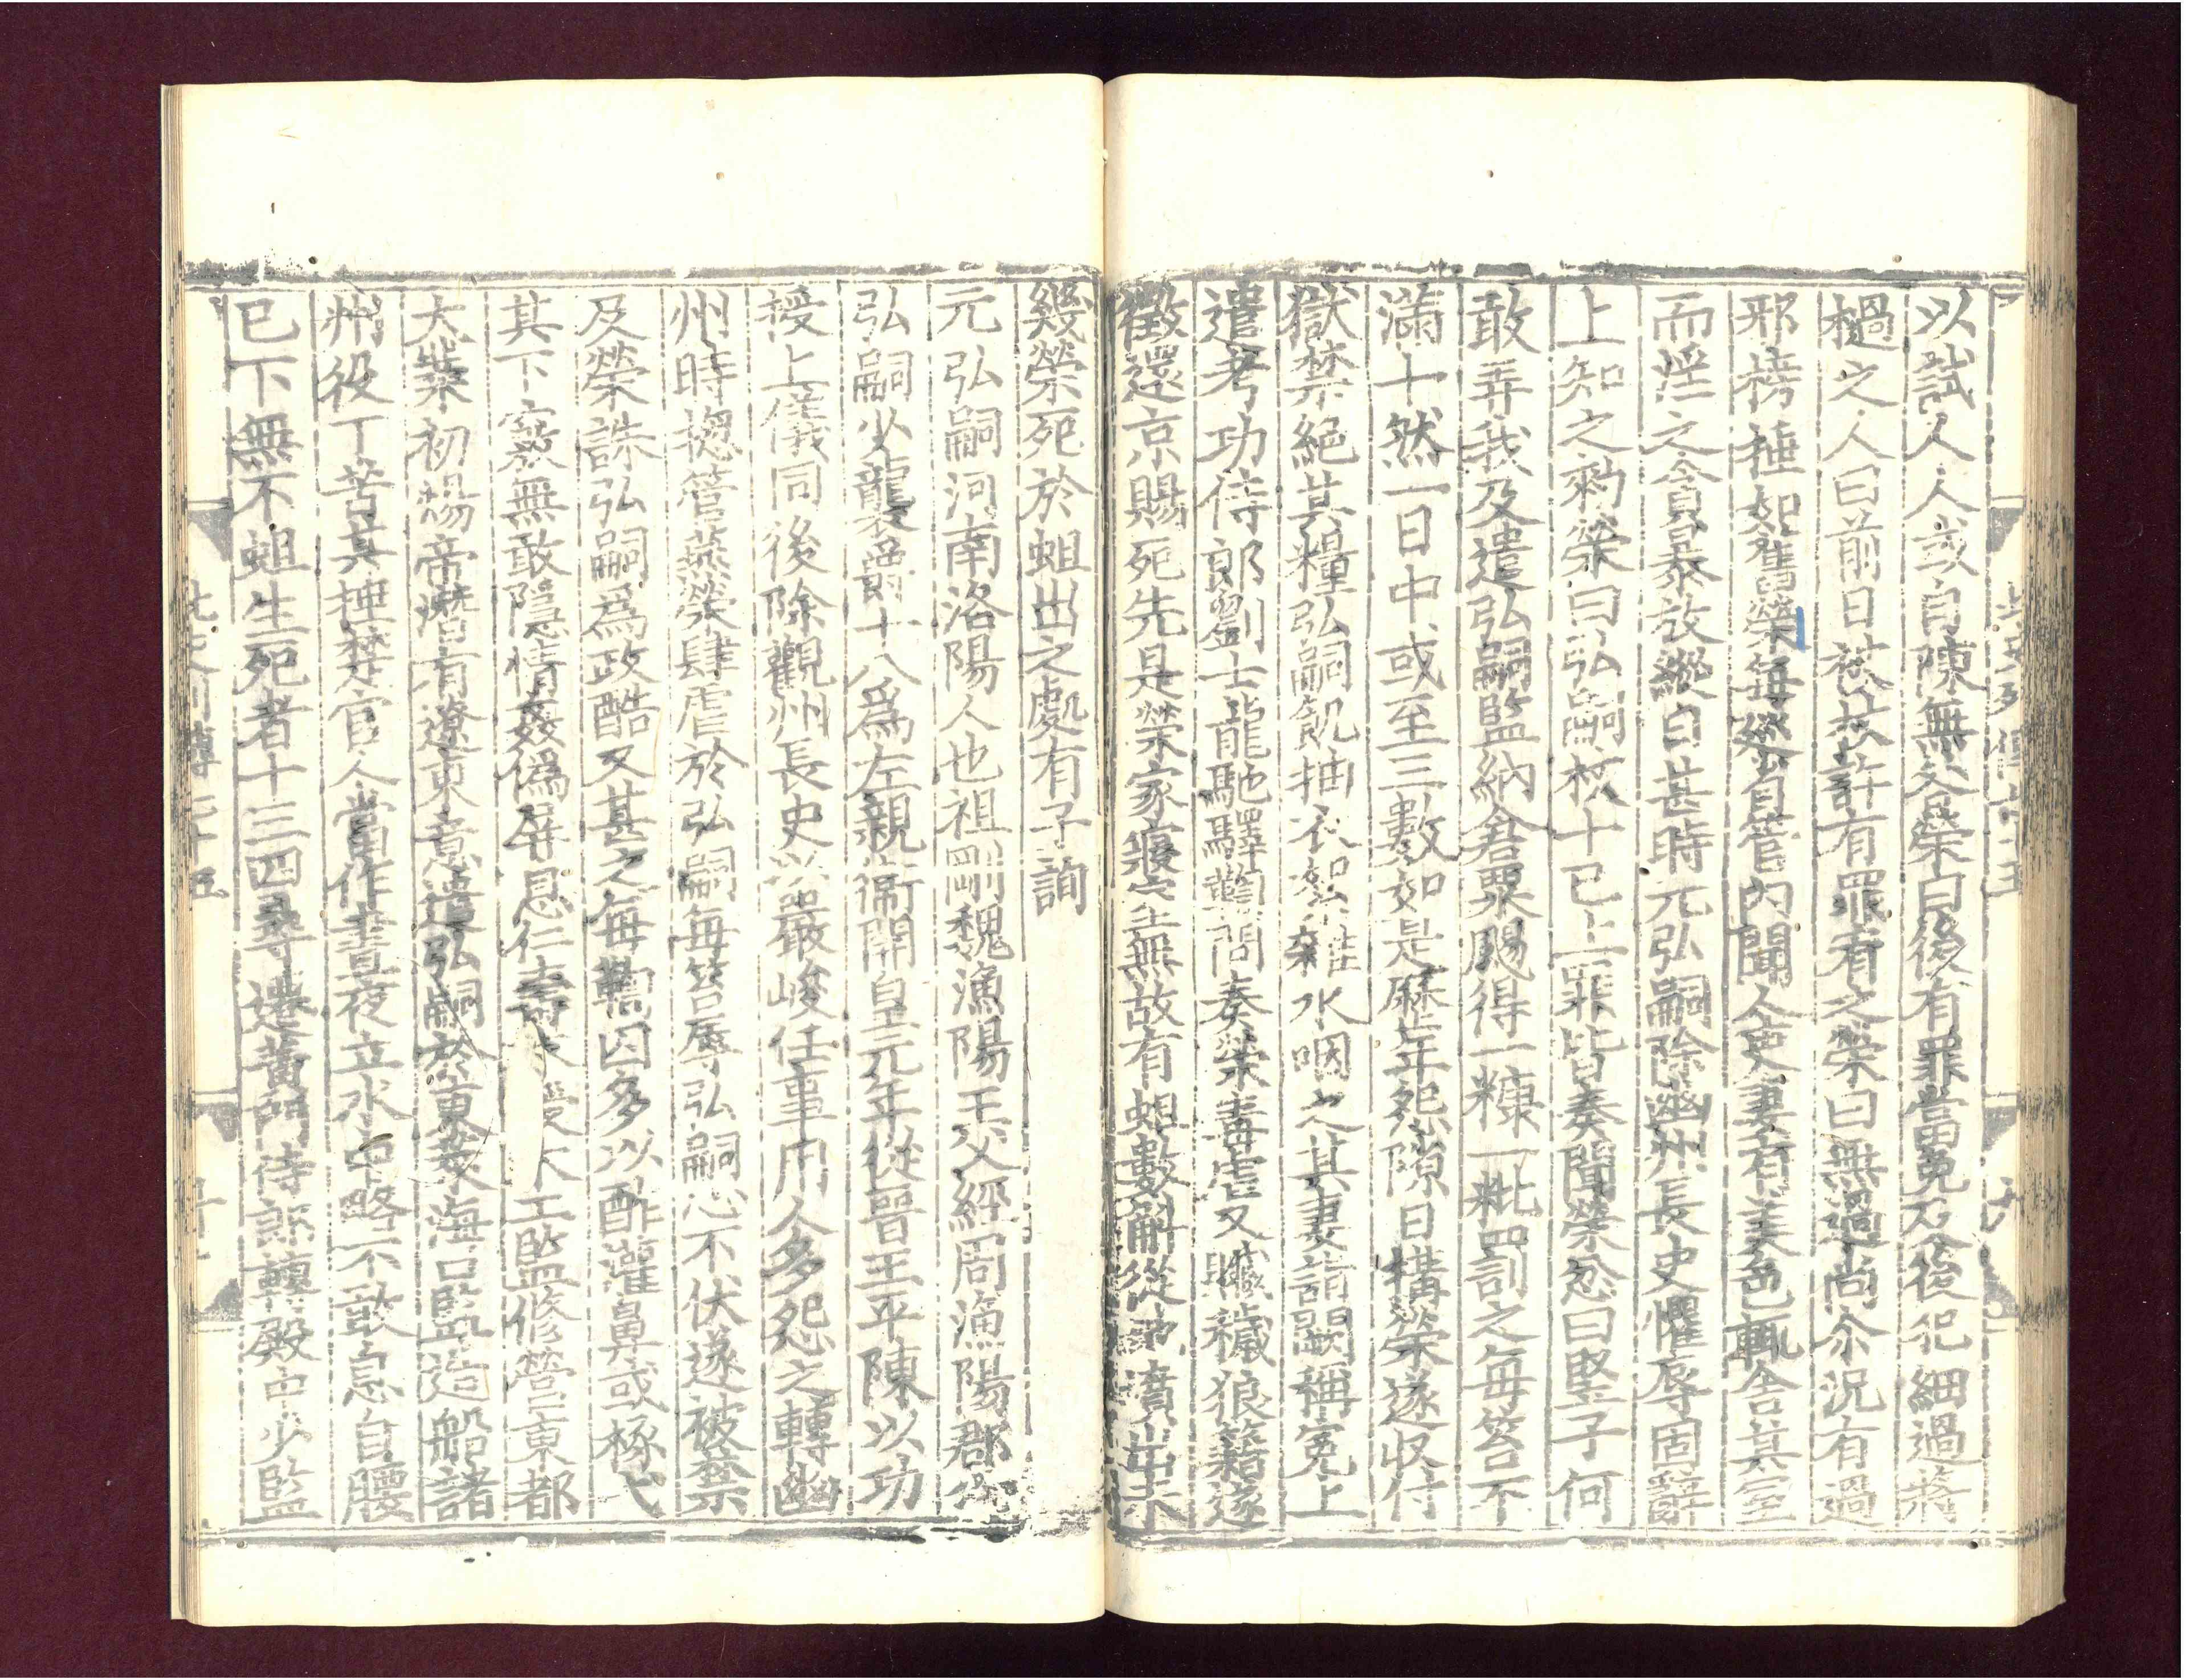 以試人人或自陳無咎榮曰後有罪當免及後犯細過將
檛之人曰前日被杖許有罪宥之榮曰無過尚尒況有過
邪榜捶如舊榮每巡省管內聞人吏妻有美色輒舍其室
而淫之貪暴放縱日甚時元弘嗣除幽州長史懼辱固辭
上知之勑榮曰弘嗣杖十已上罪皆奏聞榮忿曰竪子何
敢弄我及遣弘嗣監納倉粟颺得一糠一粃罰之每笞不
滿十然一日中或至三數如是歷年怨隙日構榮遂収付
獄禁絕其糧弘嗣飢抽衣絮雜水咽之其妻詣闕稱冤上
遣考功侍郎劉士龍馳驛鞫問奏榮毒虐又贓穢狼籍遂
徵還京賜死先是榮家寢室無故有蛆數斛從地墳出未
幾榮死於蛆出之處有子詢
元弘嗣河南洛陽人也祖剛魏漁陽王父經周漁陽郡公
弘嗣少襲爵十八爲左親衞開皇元年從晉王平陳以功
授上儀同後除觀州長史以嚴峻任事用人多怨之轉幽
州時揔管燕榮肆虐於弘嗣每笞辱弘嗣心不伏遂被禁
及榮誅弘嗣爲政酷又甚之每鞫囚多以酢灌鼻或椓弋
其下竅無敢隱情姦僞屏息仁壽末授木工監修營東都
大業初煬帝潛有遼東意遣弘嗣於東萊海口監造船諸
州役丁苦其捶楚官人當作晝夜立水中略不敢怠自腰
已下無不蛆生死者十三四尋遷黃門侍郎轉殿中少監